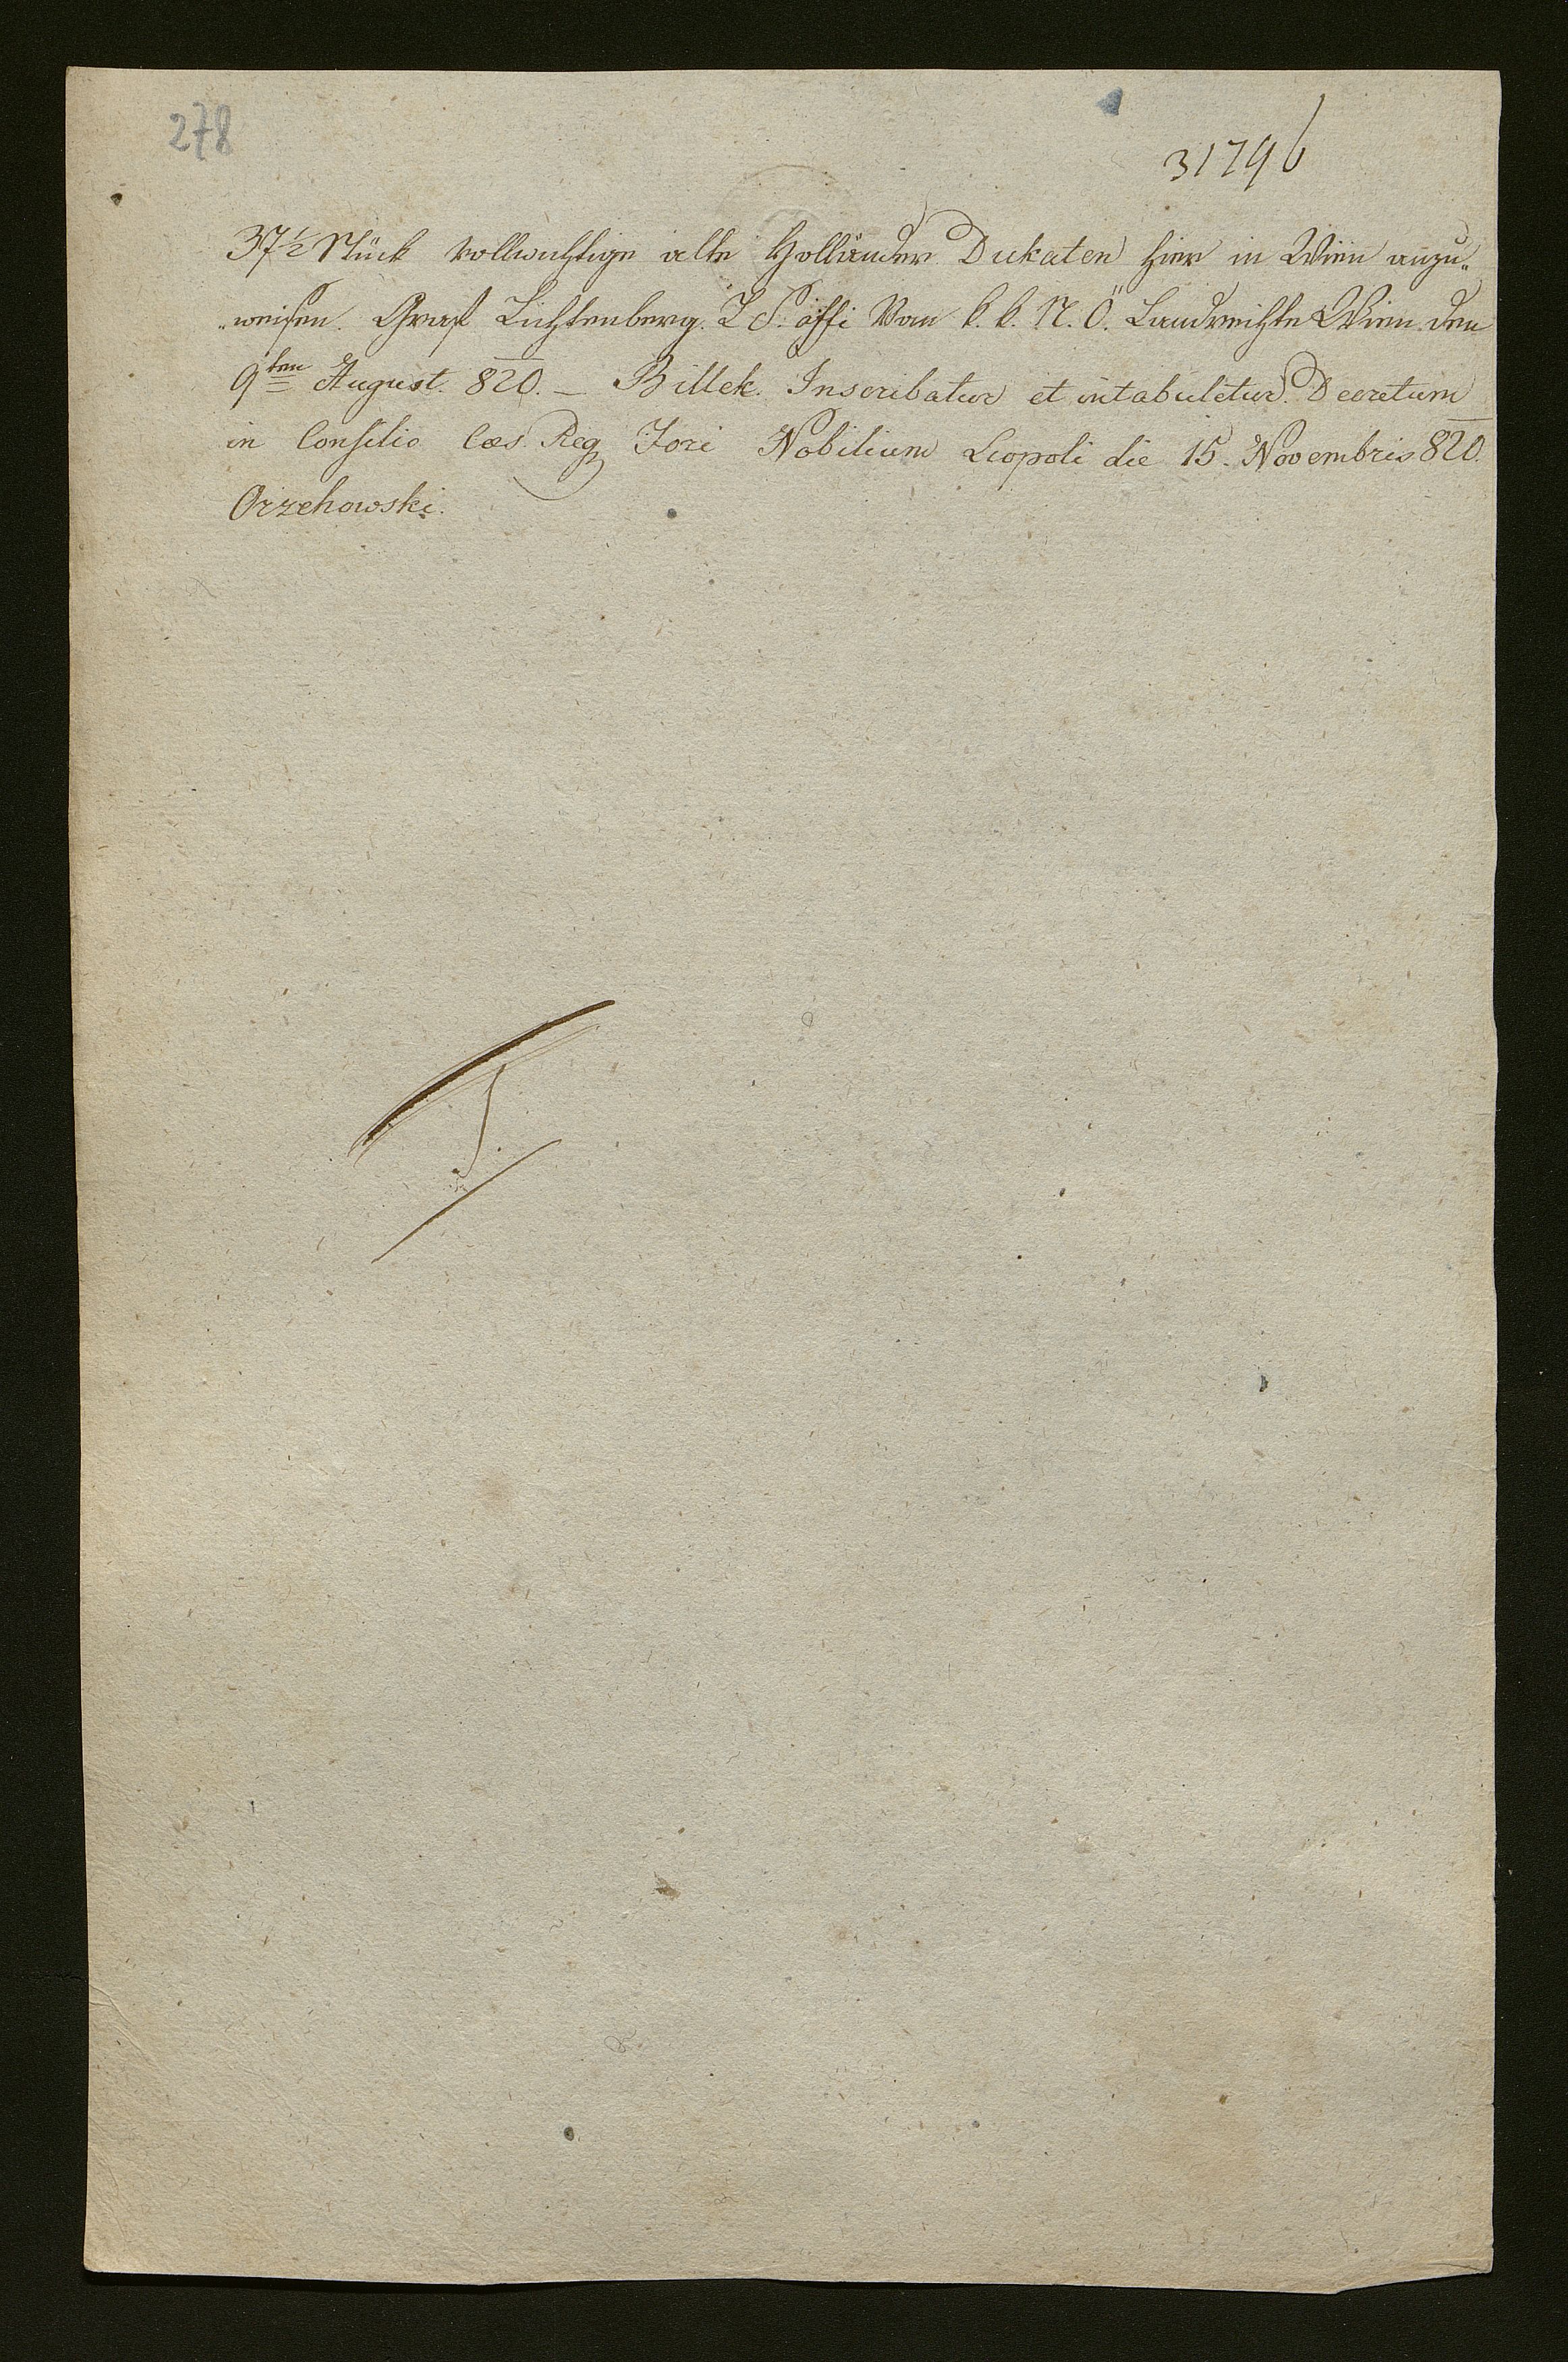 278
31796
37½ Stück vollwichtige alte Holländer Dukaten hier in Wien anzu„
„weisen. Graf Lichtenberg. L S. offi Vom k. k. N. Ö. Landrechte Wien den
9ten August 820. – Billek. Inscribatur et intabuletur. Decretum
in Consilio Caes. Reg Fori Nobilium Leopoli die 15. Novembris 820.
Orzehowski.